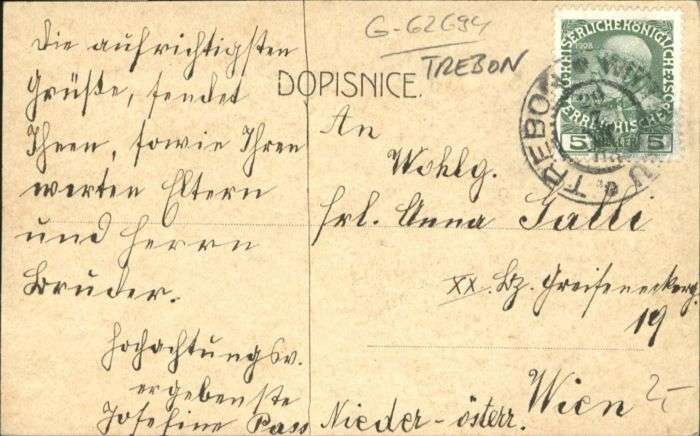 Die aufrichtigsten
Grüße, sendet
Ihnen, sowie Ihren
werten Eltern
und Herrn
Bruder.
Hochachtungsv.
ergebenste
Josefine Pass
G-62694
TREBON
DOPISNICE.
An
Wohlg.
Frl. Anna Galli
XX. Bz. Greiseneckerg.
19
Wien
Nieder-österr.
2,-
KAISERLICHE KÖNIGLICHE
1908
5 HELLER 5
TREBO